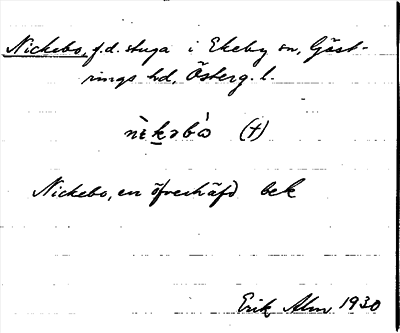 Nickebo, f.d. stuga i Ekeby sn, Göst-
rings hd, Österg. l.
nèkəbò (†)
Nickebo, en öfverhäfd bek
Erik Alm 1930